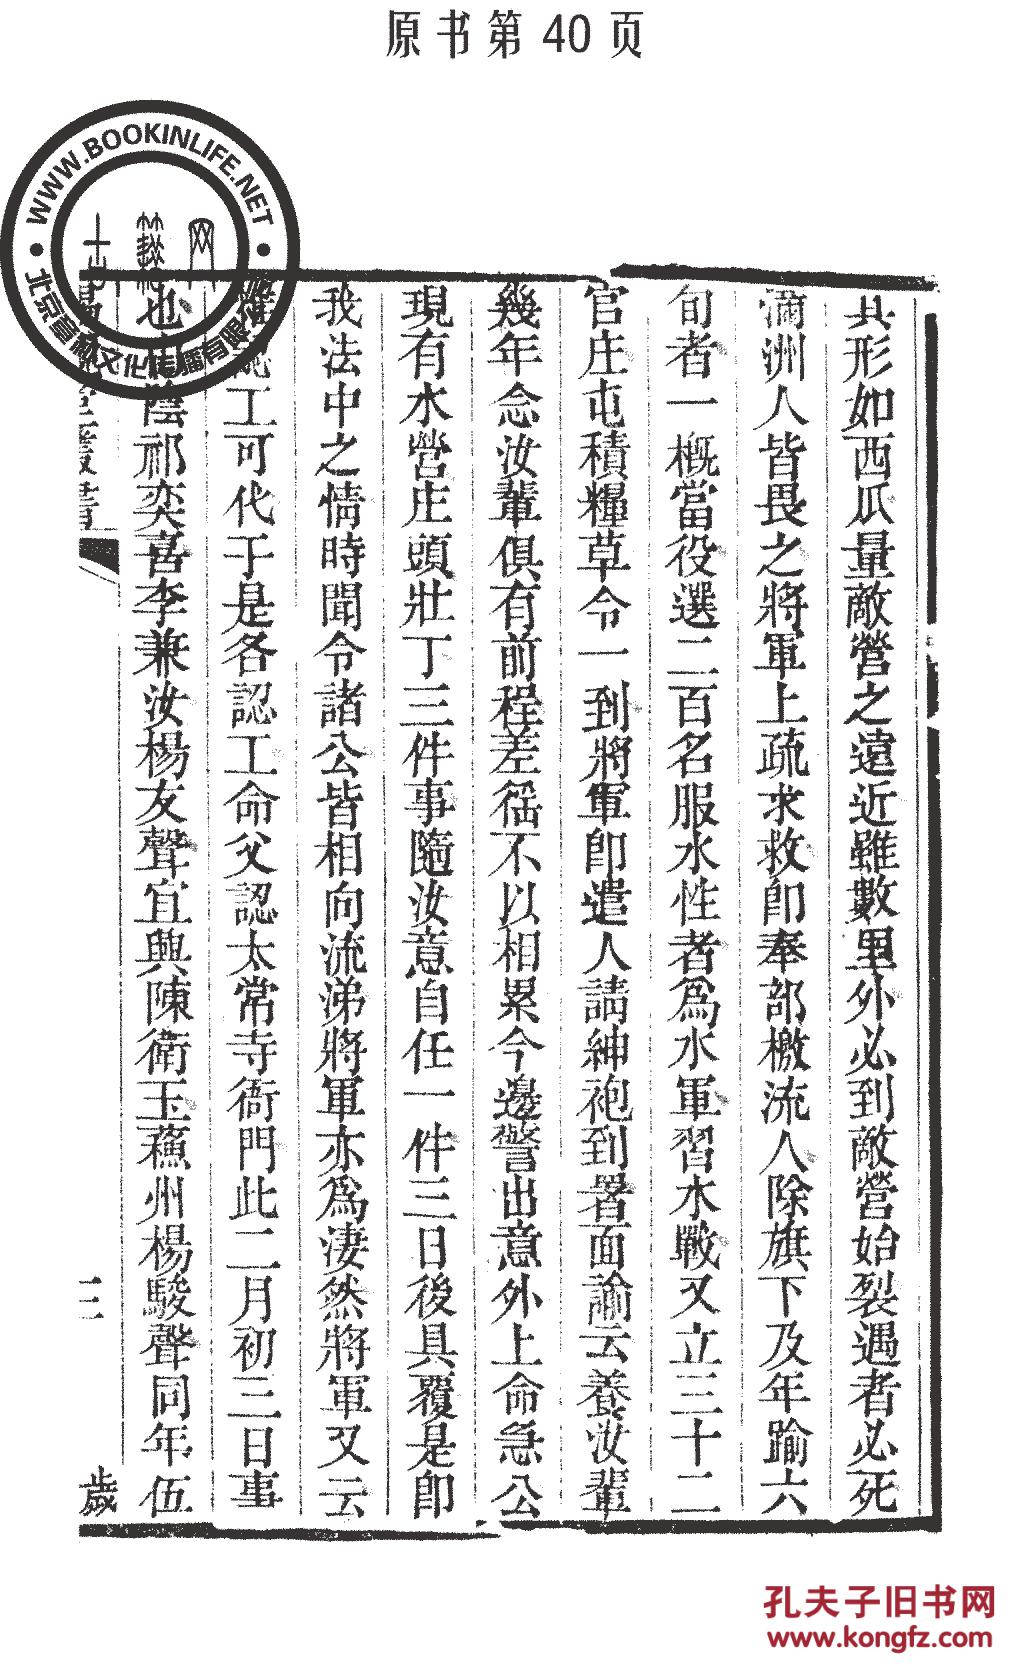 原书第40页
其形如西瓜量敵營之遠近雖數里外必到敵營始裂遇者必死
濔洲人皆畏之將軍上疏求救卽奉部檄流人除旗下及年踰六
旬者一概當役選二百名服水性者爲水軍習水戰又立三十二
官庄屯積糧草令一到將軍卽遣人請紳袍到署面諭云養汝輩
幾年念汝輩俱有前程差徭不以相累今邊警出意外上命急公
現有水營庄頭壯丁三件事隨汝意自任一件三日後具覆是卽
我法中之情時聞令諸公皆相向流涕將軍亦爲淒然將軍又云
工可代于是各認工命父認太常寺衙門此二月初三日事
也 陰祁奕喜李兼汝楊友聲宜興陳衛玉蘓州楊駿聲同年伍
堂叢書
三
歲
WWW.BOOKINLIFE.NET
北京 文化传播有限
孔夫子旧书网
www.kongfz.com